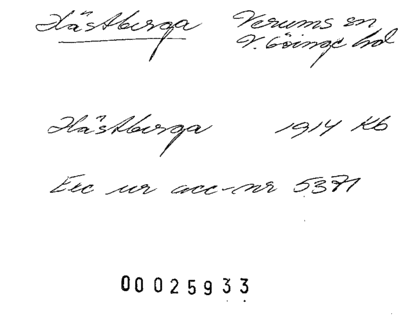 Hästberga Verums sn
V. Göinge hd
Hästberga 1914 Kb
Exc ur acc-nr 5371
00025933